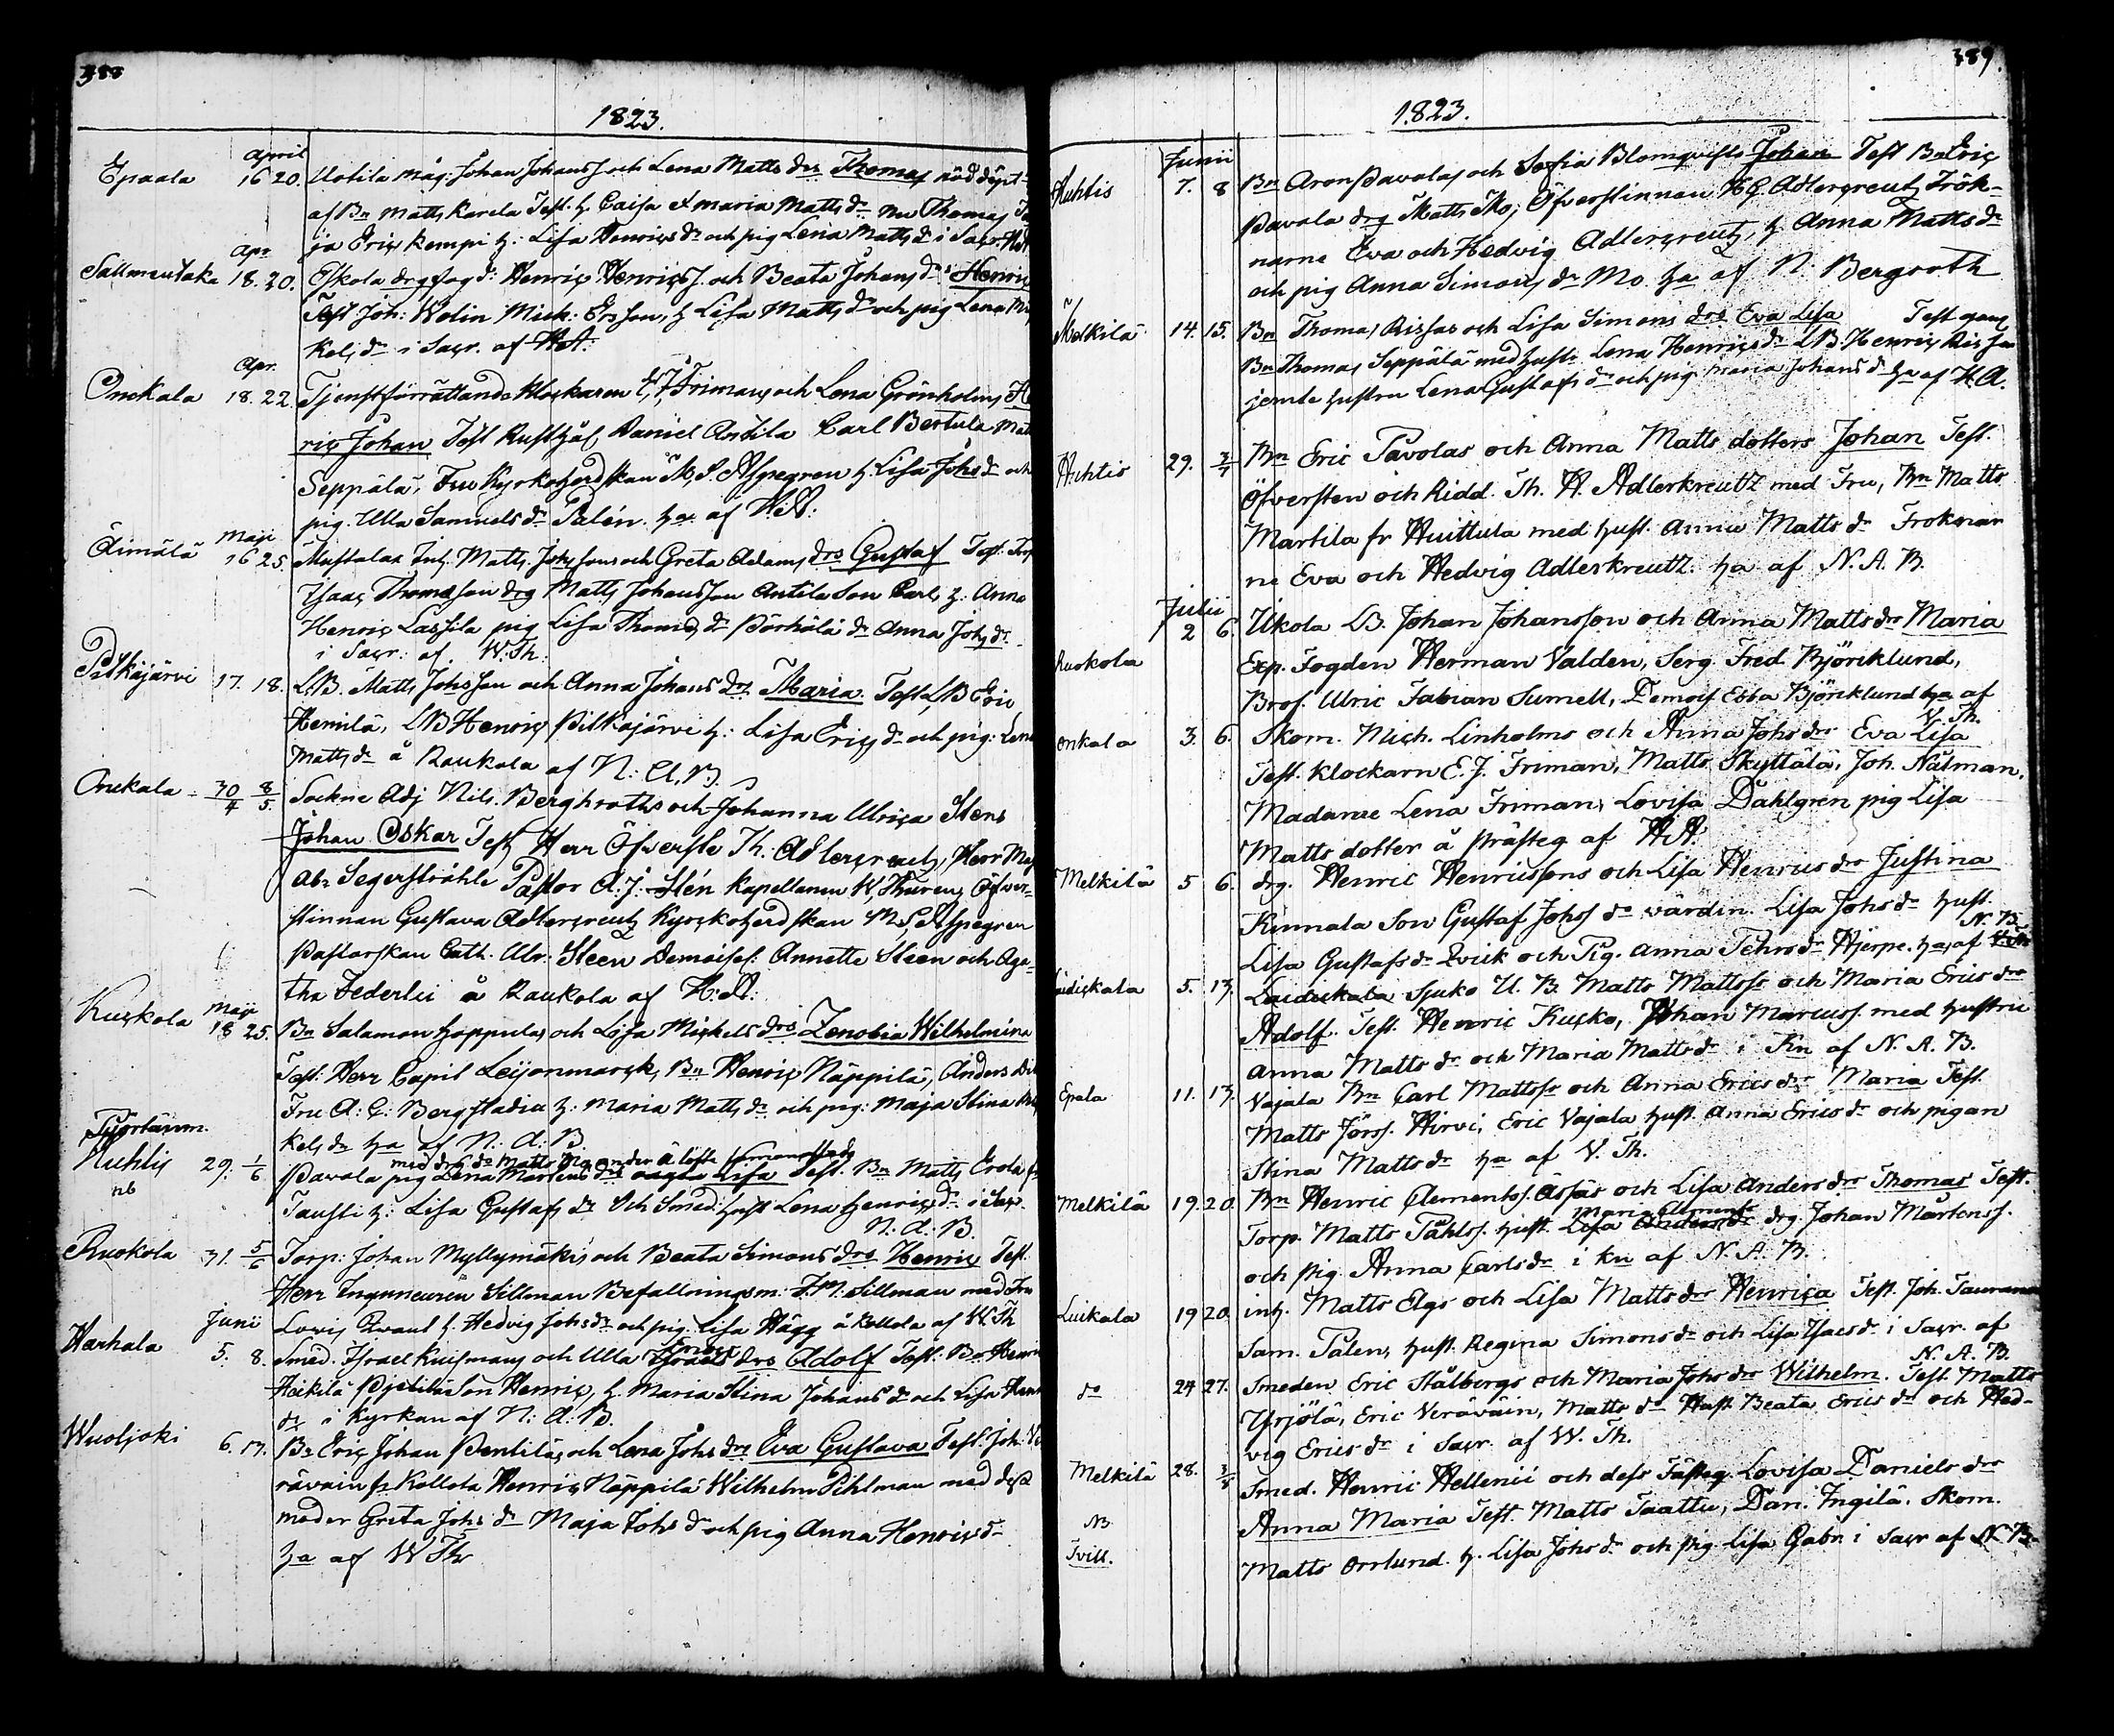 388
1823.
April
Epaala 16 20. Uotila måg: Johan Johanss och Lena Matts drs Thomas nöddöpt
af Bn Matts Karela Test. h. Caisa & maria Matts dr nu Thomas
ja Eriç Kempi h: Lisa Henriçs dr och pig Lena Matts dr i Saçr. HA
Apr
Sallmentaka 18. 20. Eskola drg Henriç Henriçs. och Beata Johans drs Henriç
Test Joh: Wolin Mich: Ersson, h Lisa Matts dr och pig Lena Mi
kels dr i Saçr. af HA:
Apr.
Onckala 18. 22. Tjenstförrättande Klockaren E. J. Frimans och Lena Grönholms He
riç Johan Test Rusthål, Daniel Antila Carl Bertula Matts
Seppälä, Fru Kyrkoherdskan M. S. Aspegren h. Lisa Johs dr och
pig. Ulla Samuels dr Palén. ha af H.A:
Maji
Äimälä 16 25. Mustalax Inh. Matts Johssons och Greta Adams drs Gustaf Test. Torp
Isaaç Thomasson drg Matts Johansson Antila Son Carl, h. Anna
Henriç Lassila pig Lisa Thomas dr Pörhölä dr Anna Johs dr.
i Saçr: af W. Th:
Pitkäjärvi 17. 18. L.B. Matts Johsson och Anna Johans drs Maria Test. LB Eric
Hemilä, LB Henriç Pitkäjärvi h: Lisa Eriçs dr och pig: Lena
Matts dr å Raukola af N: A. B.
Onckala 30/4 8/5 Sockne Adj Nils. Berghroths och Johanna Ulriça Stens
Johan Oskar Test Herr Öfverste Th: Adlerçreutz, Herr Maj
Abr Segerstråhle Pastor A. J. Stén Kapellanen W, Thuren, Öfver-
stinnan Gustava Adlerçreutz Kyrkoherdskan M. S. Aspegren
Pastorskan Cath. Ulr. Steen Demoisel. Annette Steen och Aga-
tha Federlei å Raukola af H:A:
Maji
Kuçkola 18 25. Bn Salamon Hoppulas och Lisa Michels drs Zenobia Wilhelmina
Test: Herr Capit Leijonmarçk, Bn Henriç Näppilä, Anders
Fru A: C: Bergstadia h: Maria Matts dr och pig: Maja Stina Mi
kels dr ha af N: A: B.
Työrtänm.
Huhtis 29. 1/6 Pavola pig Lena Mårtens drs oagta Lisa Test. Bn Matts Erola fr
nb
med drg dr Matts
Tausti h: Lisa Gustafs dr Och Smed. hust Lena Henriçs dr i Saçr.
N: A: B.
Ruokola 31. 5/6 Torp: Johan Myllymäkis och Beata Simons drs Henriç Test.
Herr Ingeneuren Sillman Befallningsm: F. M: Sillman med Fru
Lovis Qvant h. Hedvig Johs dr och pig. Lisa Hägg å Kollola af W. Th
Junii
Hauhala 5. 8. Smed. Israel Kuismans och Ulla Israels drs Adolf Test: Bn Henric
Anders
Heikilä Pjetilä Son Henriç, h. Maria Stina Johans dr och Lisa Hen
dr i Kyrkan af N: A: B.
Wuoljoki 6. 17. Bn Eriç Johan Pentiläs och Lena Johs drs Eva Gustava Test. Joh: Ve
rävain fr Kollola Henriç Näppilä Wilhelm Pihlman med dess
moder Greta Johs dr Maja Johs dr och pig Anna Henriçs dr
ha af W Th
389.
1823.
Junii
Huhtis 7. 8 Bn Aron Pavolas och Sofia Blomqvists Johan Test Bn Eriç
Pavola drg Matts Mo, Öfverstinnan H G Adlerçreutz Frök-
narne Eva och Hedvig Adlerçreutz, h Anna Matts dr
och pig Anna Simons dr Mo. ha af N: Bergroth
Melkilä 14. 15. Bn Thomas Rissas och Lisa Simons drs Eva Lisa Test
Bn Thomas Seppälä med hustr. Lena Henriçs dr LB. Henriç Rissa
jemte hustru Lena Gustafs dr och pig Maria Johans dr ha af H A.
Huhtis 29. 3/7 Bn Eric Pavolas och Anna Matts dotters Johan Test.
Öfversten och Ridd. Th. A. Adlerkreutz med Fru, Bn Matts
Martila fr Huittula med hust. Anna Matts dr Froknar
ne Eva och Hedvig Adlerkreutz. ha af N. A. B.
Julii
2 6. Ukola L.B. Johan Johansson och Anna Matts drs Maria
Ruokola
Exp. Fogden Herman Valden, Serg. Fred Björklund,
Brof. Ulric Fabian Sumell, Demois Ebba Björklund ha af
V. Th.
Onkala 3. 6. Skom. Mich. Linholms och Anna Johs drs Eva Lisa
Test. Klockarn E. J. Friman, Matts Skyttälä, Joh. Nätman,
Madame Lena Friman, Lovisa Dahlgren pig Lisa
Matts dotter å Prästeg af H A:
Melkilä 5 6. drg. Henric Henricssons och Lisa Henrics drs Justina
Kinnala Son Gustaf Johs dr värdin. Lisa Johs dr hust.
Lisa Gustafs dr Qvick och Pig. Anna Pehrs dr Hjerpe. ha af N. B.
Laidickala 5. 13. Laidickala Sjuko U. B. Matts Mattss och Maria Erics drs
Adolf. Test. Henric Kuçko, Johan Marcuss. med hustru
Anna Matts dr och Maria Matts dr i Kn af N. A. B.
Epala 11. 13. Vajala Bn Carl Mattss och Anna Erics drs Maria Test.
Matts Jörs. Hirvi, Eric Vajala hust. Anna Erics dr och pigan
Stina Matts dr ha af V. Th.
Melkilä 19. 20. Bn Henric Clementss. Assas och Lisa Anders drs Thomas Test.
Maria Clements
Torp. Matts Påhls. hust. Lisa Anders dr drg. Johan Mårtenss.
och pig. Anna Carls dr i kn af N. A. B.
Luikala 19 20. inh. Matts Elgs och Lisa Matts drs Henriça Test. Joh. Tauranen
Sam. Palen, hust. Regina Simons dr och Lisa Isacs dr i Saçr. af
N. A. B.
dr 24 27. Smeden Eric Stålbergs och Maria Johs drs Wilhelm. Test. Matts
Yrjölä, Eric Verävain, Matts dr Hust Beata Erics dr och Hed-
vig Erics dr i Saçr. af W. Th.
Melkilä 28. 3/8 Smed. Henric Hellenii och dess Fästeq. Lovisa Daniels drs
NB Anna Maria Test. Matts Taattu, Dan. Ingilä. Skom.
Tvill. Matts Orrlund. h. Lisa Johs dr och pig Lisa Gabr. i Saçr af N. B.